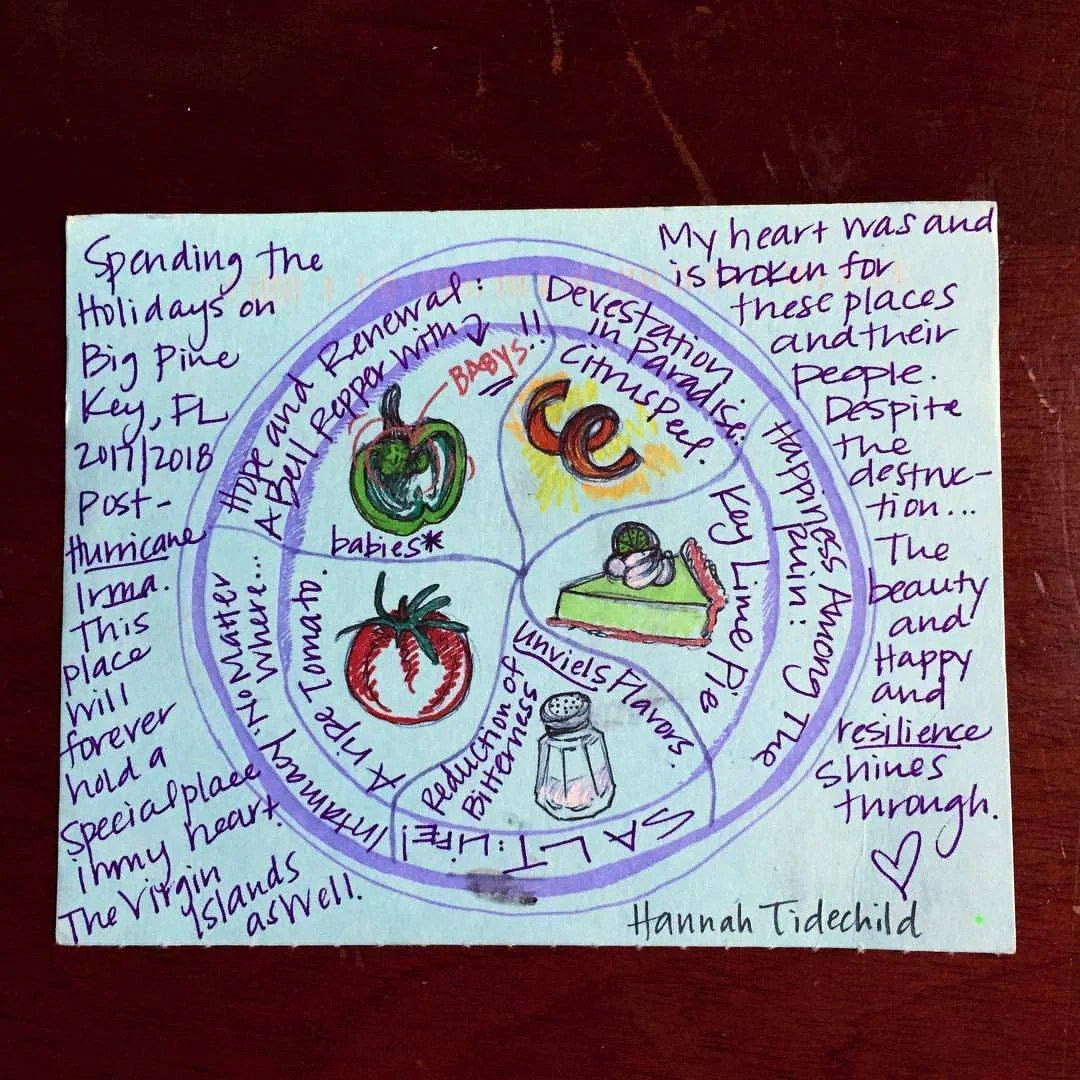 Spending the
Holidays on
Big Pine
Key, FL
2017/2018
Post-
Hurricane
Irma.
This
place
will
forever
hold a
Special place
in my heart.
The Virgin
Islands
as well.
Hope and Renewal:
A Bell Pepper with
BABYS!!
babies*
Devestation
in Paradise:
Citrus Peel.
Happiness Among The
Ruin:
Key Lime Pie
SALT: LiFE!
Reduction of
Bitterness
Unviels Flavors.
Intamacy 'No Matter
Where...
A ripe Tomato.
My heart was and
is broken for
these places
and their
people.
Despite
the
destruc-
tion...
The
beauty
and
Happy
and
resilience
shines
through.
Hannah Tidechild